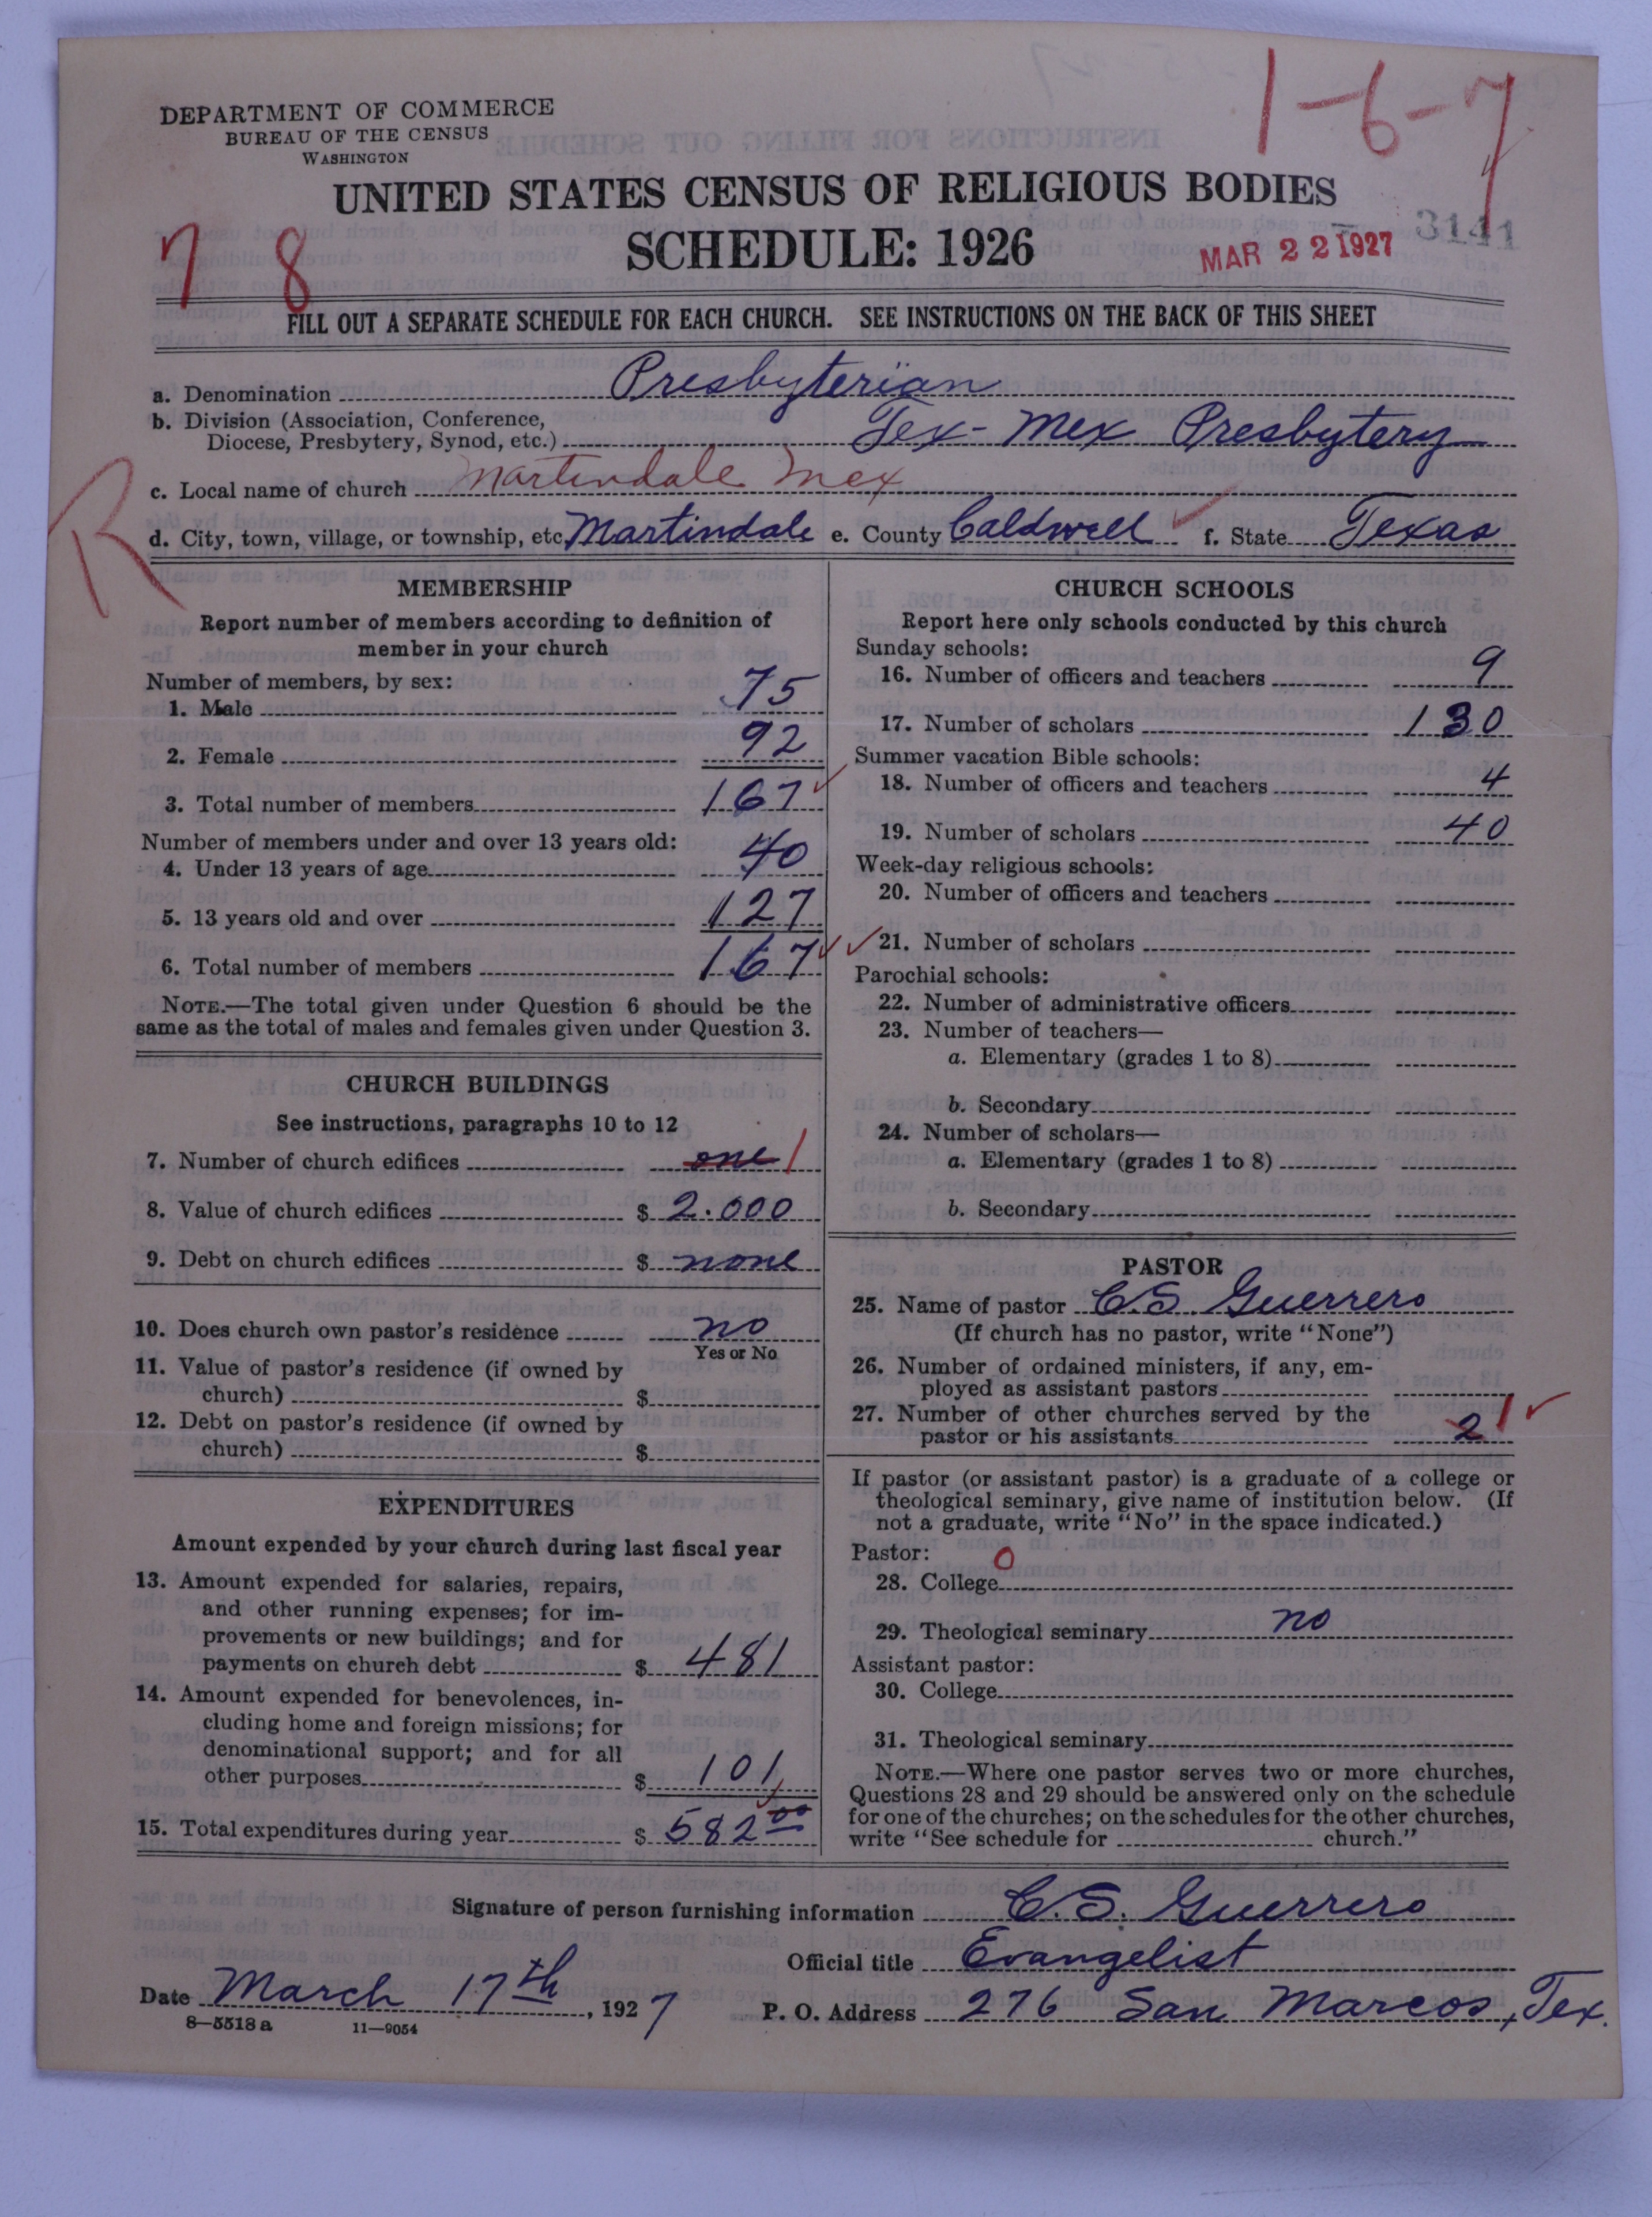 1-6-7
DEPARTMENT OF COMMERCE
BUREAU OF THE CENSUS
WASHINGTON
UNITED STATES CENSUS OF RELIGIOUS BODIES
SCHEDULE: 1926
7 8
MAR 22 1927
3141
FILL OUT A SEPARATE SCHEDULE FOR EACH CHURCH. SEE INSTRUCTIONS ON THE BACK OF THIS SHEET
a. Denomination Presbyterian
b. Division (Association, Conference,
Diocese, Presbytery, Synod, etc.) Tex-Mex Presbytery
c. Local name of church Martindale Mex
R
d. City, town, village, or township, etc. Martindale e. County Caldwell ✓ f. State Texas
MEMBERSHIP
Report number of members according to definition of
member in your church
Number of members, by sex:
1. Male 75
2. Female 92
3. Total number of members 167 ✓
Number of members under and over 13 years old:
4. Under 13 years of age 40
5. 13 years old and over 127
6. Total number of members 167 ✓ ✓
NOTE.—The total given under Question 6 should be the
same as the total of males and females given under Question 3.
CHURCH BUILDINGS
See instructions, paragraphs 10 to 12
7. Number of church edifices one 1
8. Value of church edifices $ 2.000
9. Debt on church edifices $ none
10. Does church own pastor's residence no
Yes or No
11. Value of pastor's residence (if owned by
church) $
12. Debt on pastor's residence (if owned by
church) $
EXPENDITURES
Amount expended by your church during last fiscal year
13. Amount expended for salaries, repairs,
and other running expenses; for im-
provements or new buildings; and for
payments on church debt $ 481
14. Amount expended for benevolences, in-
cluding home and foreign missions; for
denominational support; and for all
other purposes $ 101
15. Total expenditures during year $ 582 00
CHURCH SCHOOLS
Report here only schools conducted by this church
Sunday schools:
16. Number of officers and teachers 9
17. Number of scholars 130
Summer vacation Bible schools:
18. Number of officers and teachers 4
19. Number of scholars 40
Week-day religious schools:
20. Number of officers and teachers
21. Number of scholars
Parochial schools:
22. Number of administrative officers
23. Number of teachers—
a. Elementary (grades 1 to 8)
b. Secondary
24. Number of scholars—
a. Elementary (grades 1 to 8)
b. Secondary
PASTOR
25. Name of pastor C.S. Guerrero
(If church has no pastor, write "None")
26. Number of ordained ministers, if any, em-
ployed as assistant pastors
27. Number of other churches served by the
pastor or his assistants 2 1 ✓
If pastor (or assistant pastor) is a graduate of a college or
theological seminary, give name of institution below. (If
not a graduate, write "No" in the space indicated.)
Pastor: 0
28. College
29. Theological seminary no
Assistant pastor:
30. College
31. Theological seminary
NOTE.—Where one pastor serves two or more churches,
Questions 28 and 29 should be answered only on the schedule
for one of the churches; on the schedules for the other churches,
write "See schedule for church."
Signature of person furnishing information C.S. Guerrero
Official title Evangelist
Date March 17th, 1927 P. O. Address 276 San Marcos, Tex.
8—5518 a 11—9054